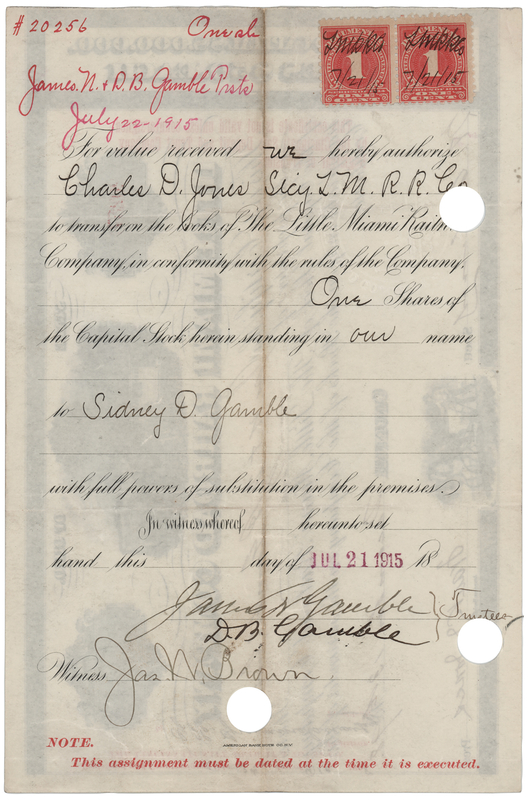 # 20256
James. N. & D. B. Gamble Trsts
July 22 - 1915
1 7/21/15 1 7/21/15
For value received we hereby authorize
Charles D. Jones Sec'y L. M. R. R. Co
to transfer on the books of The Little Miami Railro
Company, in conformity with the rules of the Company,
One Shares of
the Capital Stock herein standing in our name
to Sidney D Gamble
with full powers of substitution in the premises.
In witness whereof hereunto set
hand this day of JUL 21 1915 18
James N Gamble } Trustees
D.B. Gamble
Witness Jas. N. Brown.
AMERICAN BANK NOTE CO. N.Y.
NOTE.
This assignment must be dated at the time it is executed.